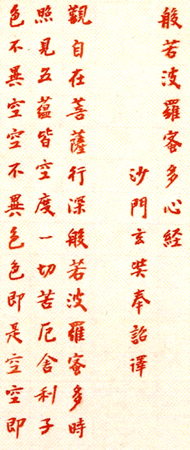 般若波羅蜜多心経
沙門玄奘奉詔譯
觀自在菩薩行深般若波羅蜜多時
照見五蘊皆空度一切苦厄舍利子
色不異空空不異色色即是空空即